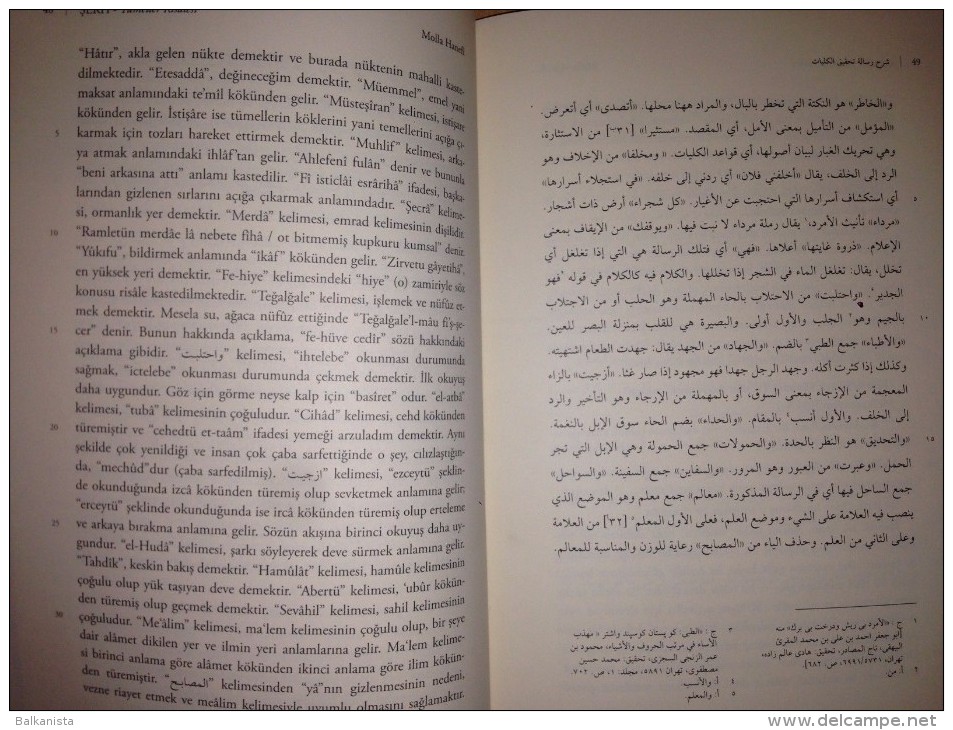 Molla Hanefî
“Hâtır”, akla gelen nükte demektir ve burada nüktenin mahalli kaste-
dilmektedir. “Etesaddâ”, değineceğim demektir. “Müemmel”, emel yani
maksat anlamındaki te’mil kökünden gelir. “Müsteşîran” kelimesi, istişâre
kökünden gelir. İstişâre ise tümellerin köklerini yani temellerini açığa çı-
5 karmak için tozları hareket ettirmek demektir. “Muhlif” kelimesi, arka-
ya atmak anlamındaki ihlâf’tan gelir. “Ahlefenî fulân” denir ve bununla
“beni arkasına attı” anlamı kastedilir. “Fî isticlâi esrârihâ” ifadesi, başka-
larından gizlenen sırlarını açığa çıkarmak anlamındadır. “Şecrâ” kelime-
si, ormanlık yer demektir. “Merdâ” kelimesi, emrad kelimesinin dişilidir.
10 “Ramletün merdâe lâ nebete fîhâ / ot bitmemiş kupkuru kumsal” denir.
“Yûkıfu”, bildirmek anlamında “îkâf” kökünden gelir. “Zirvetu gâyetihâ”,
en yüksek yeri demektir. “Fe-hiye” kelimesindeki “hiye” (o) zamiriyle söz
konusu risâle kastedilmektedir. “Teğalğale” kelimesi, işlemek ve nüfûz et-
mek demektir. Mesela su, ağaca nüfûz ettiğinde “Teğalğale’l-mâu fi’ş-şe-
15 cer” denir. Bunun hakkında açıklama, “fe-hüve cedîr” sözü hakkındaki
açıklama gibidir. “واحتلبت” kelimesi, “ihtelebe” okunması durumunda
sağmak, “ictelebe” okunması durumunda çekmek demektir. İlk okuyuş
daha uygundur. Göz için görme neyse kalp için “basîret” odur. “el-atbâ”
kelimesi, “tubâ” kelimesinin çoğuludur. “Cihâd” kelimesi, cehd kökünden
20 türemiştir ve “cehedtü et-taâm” ifadesi yemeği arzuladım demektir. Aynı
şekilde çok yenildiği ve insan çok çaba sarfettiğinde o şey, cılızlaştığın-
da, “mechûd”dur (çaba sarfedilmiş). “ازجيت” kelimesi, “ezceytü” şeklin-
de okunduğunda izcâ kökünden türemiş olup sevketmek anlamına gelir;
“erceytü” şeklinde okunduğunda ise ircâ kökünden türemiş olup erteleme
25 ve arkaya bırakma anlamına gelir. Sözün akışına birinci okuyuş daha uy-
gundur. “el-Hudâ” kelimesi, şarkı söyleyerek deve sürmek anlamına gelir.
“Tahdîk”, keskin bakış demektir. “Hamûlât” kelimesi, hamûle kelimesinin
çoğulu olup yük taşıyan deve demektir. “Abertü” kelimesi, ‘ubûr kökün-
den türemiş olup geçmek demektir. “Sevâhil” kelimesi, sahil kelimesinin
30 çoğuludur. “Me’âlim” kelimesi, ma‘lem kelimesinin çoğulu olup, bir şeye
dair alâmet dikilen yer ve ilmin yeri anlamlarına gelir. Ma‘lem kelime-
si birinci anlama göre alâmet kökünden ikinci anlama göre ilim kökün-
den türemiştir. “المصابيح” kelimesinden “yâ”nın gizlenmesinin nedeni,
vezne riayet etmek ve meâlim kelimesiyle uyumlu olmasını sağlamaktır.
شرح رسالة تحقيق الكليات | 49
و«الخاطر» هو النكتة التي تخطر بالبال، والمراد ههنا محلها. «أتصدى» أي أتعرض.
«المؤمل» من التأميل بمعنى الأمل، أي المقصد. «مستثيرا» [٣١ب] من الاستثارة،
وهي تحريك الغبار لبيان أصولها، أي قواعد الكليات. «ومخلفا» من الإخلاف وهو
الرد إلى الخلف، يقال «أخلفني فلان» أي ردني إلى خلفه. «في استجلاء أسرارها»
٥ أي استكشاف أسرارها التي احتجبت عن الأغيار. «كل شجراء» أرض ذات أشجار.
«مرداء» تأنيث الأمرد،١ يقال رملة مرداء لا نبت فيها. «ويوقفك» من الإيقاف بمعنى
الإعلام. «ذروة غايتها» أعلاها. «فهي» أي فتلك الرسالة هي التي إذا تغلغل أي
تخلل، يقال: تغلغل الماء في الشجر إذا تخللها. والكلام فيه كالكلام في قوله «فهو
الجدير». «واحتلبت» من الاحتلاب بالحاء المهملة وهو الحلب أو من الاجتلاب
١٠ بالجيم وهو٢ الجلب والأول أولى. والبصيرة هي للقلب بمنزلة البصر للعين.
«والأطباء» جمع الطبي٣ بالضم. «والجهاد» من الجهد يقال: جهدت الطعام اشتهيته.
وكذلك إذا كثرت أكله. وجهد الرجل جهدا فهو مجهود إذا صار غثا. «أزجيت» بالزاء
المعجمة من الإزجاء بمعنى السوق، أو بالمهملة من الإرجاء وهو التأخير والرد
إلى الخلف. والأول أنسب٤ بالمقام. «والحداء» بضم الحاء سوق الإبل بالنغمة.
١٥ «والتحديق» هو النظر بالحدة. «والحمولات» جمع الحمولة وهي الإبل التي تجر
الحمل. «وعبرت» من العبور وهو المرور. «والسفاين» جمع السفينة. «والسواحل»
جمع الساحل فيها أي في الرسالة المذكورة. «معالم» جمع معلم وهو الموضع الذي
ينصب فيه العلامة على الشيء وموضع العلم، فعلى الأول المعلم٥ [٣٢أ] من العلامة
وعلى الثاني من العلم. وحذف الياء من «المصابح» رعاية للوزن والمناسبة للمعالم.
١ ج : «الأمرد بى ريش ودرخت بى برك» منه
أبو جعفر احمد بن على بن محمد المقرئ
البيهقى، تاج المصادر، تحقيق: هادى عالم زاده،
تهران،
٢ أ : من
٣ ج : «الطبي: كو پستان كوسپند واشتر» مهذب
الأسماء في مرتب الحروف والأشياء، محمود بن
عمر الزنجى السجزى، تحقيق: محمد حسين
مصطفوى، تهران ٥٨٩١، مجلد: ١، ص. ٧٠٢.
٤ أ : والأنسب
٥ أ : والمعلم
Balkanista
www.delcampe.net